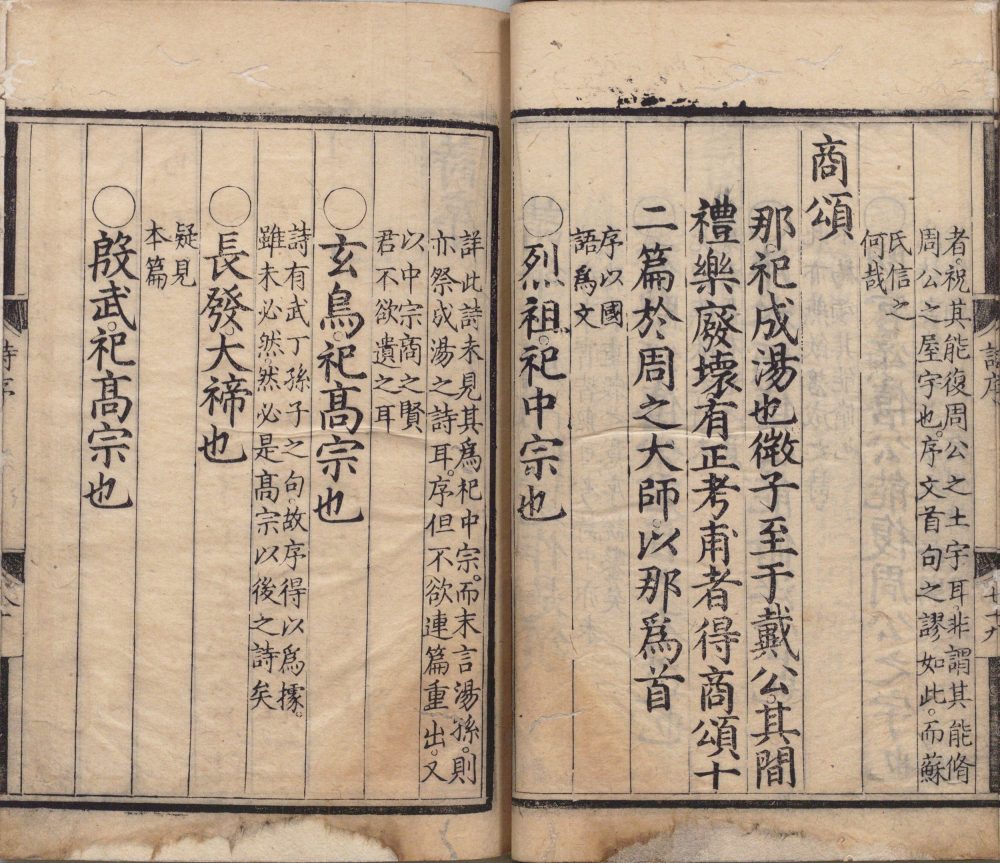 者祝其能復周公之土宇耳非謂其能脩
周公之屋宇也。序文首句之謬如此。而蘇
氏信之
何哉
商頌
那。祀成湯也。微子至于戴公。其間
禮樂廢壞。有正考甫者得商頌十
二篇於周之大師。以那爲首
序以國
語爲文
○烈祖。祀中宗也
詳此詩未見其爲祀中宗。而末言湯孫。則
亦祭成湯之詩耳。序但不欲連篇重出。又
以中宗商之賢
君不欲遺之耳
○玄鳥。祀高宗也
詩有武丁孫子之句。故序得以爲據。
雖未必然。然必是高宗以後之詩矣
○長發。大禘也
疑見
本篇
○殷武。祀高宗也
詩序
七十九
詩序
八十